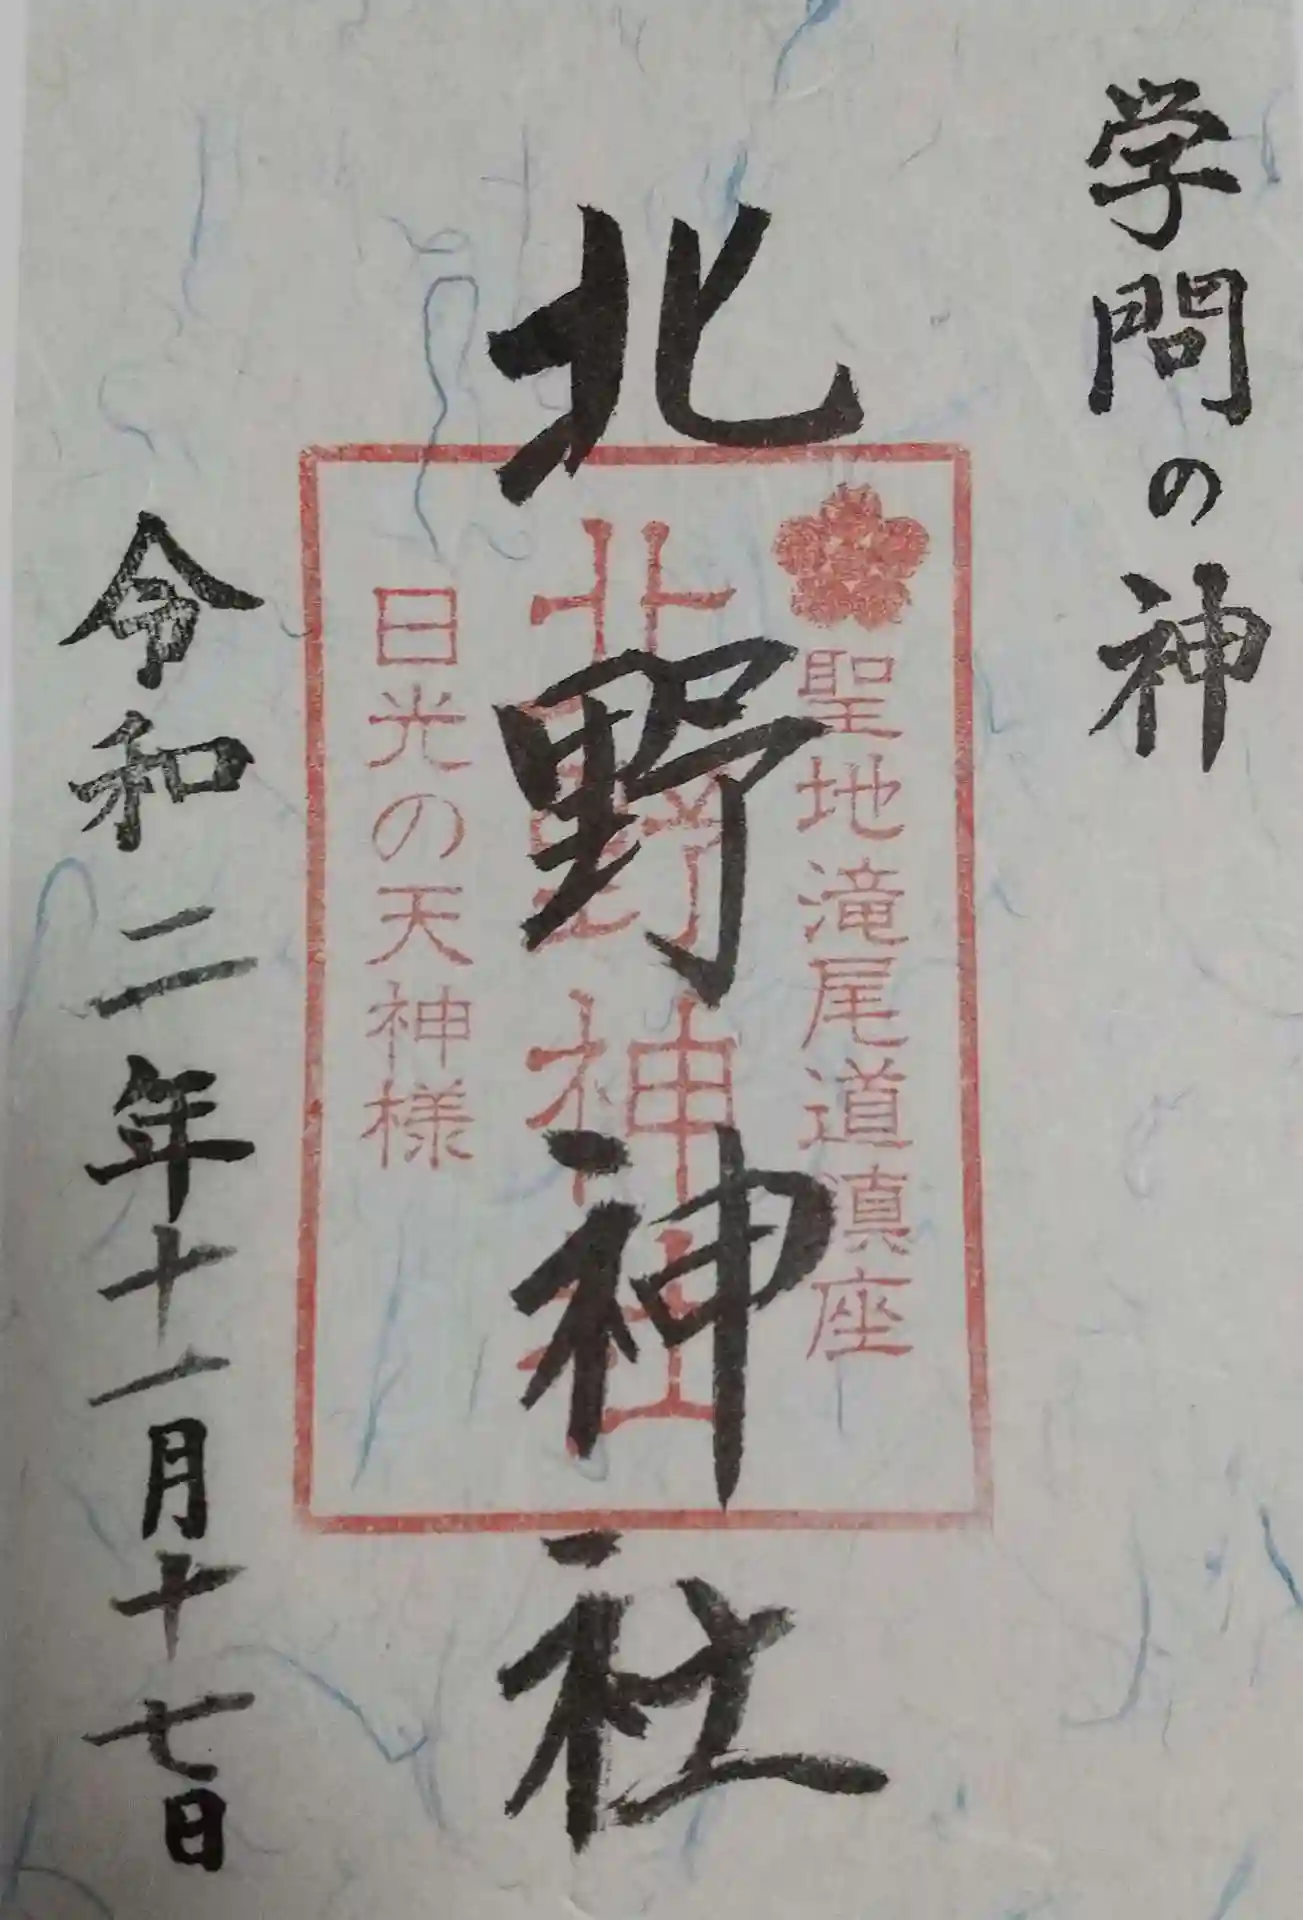 学問の神
聖地滝尾道真座
北野神社
北野神社
日光の天神様
令和二年十一月十七日